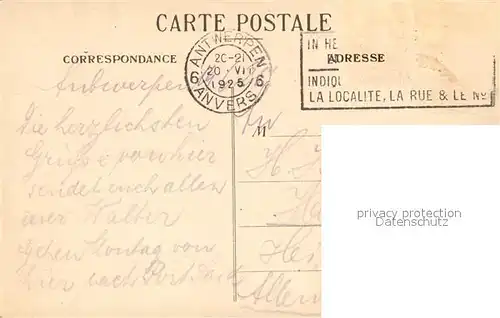 CARTE POSTALE
CORRESPONDANCE
ADRESSE
ANTWERPEN
6 6
20-21
20 VII
1925
ANVERS
IN HE
INDIQ
LA LOCALITE, LA RUE & LE No
Antwerpen
Die herzlichsten
Grüße von hier
sendet euch allen
euer Walter
gehen Montag von
hier nach
An
M
H.
Ha
Hei
Allem
privacy protection
Datenschutz